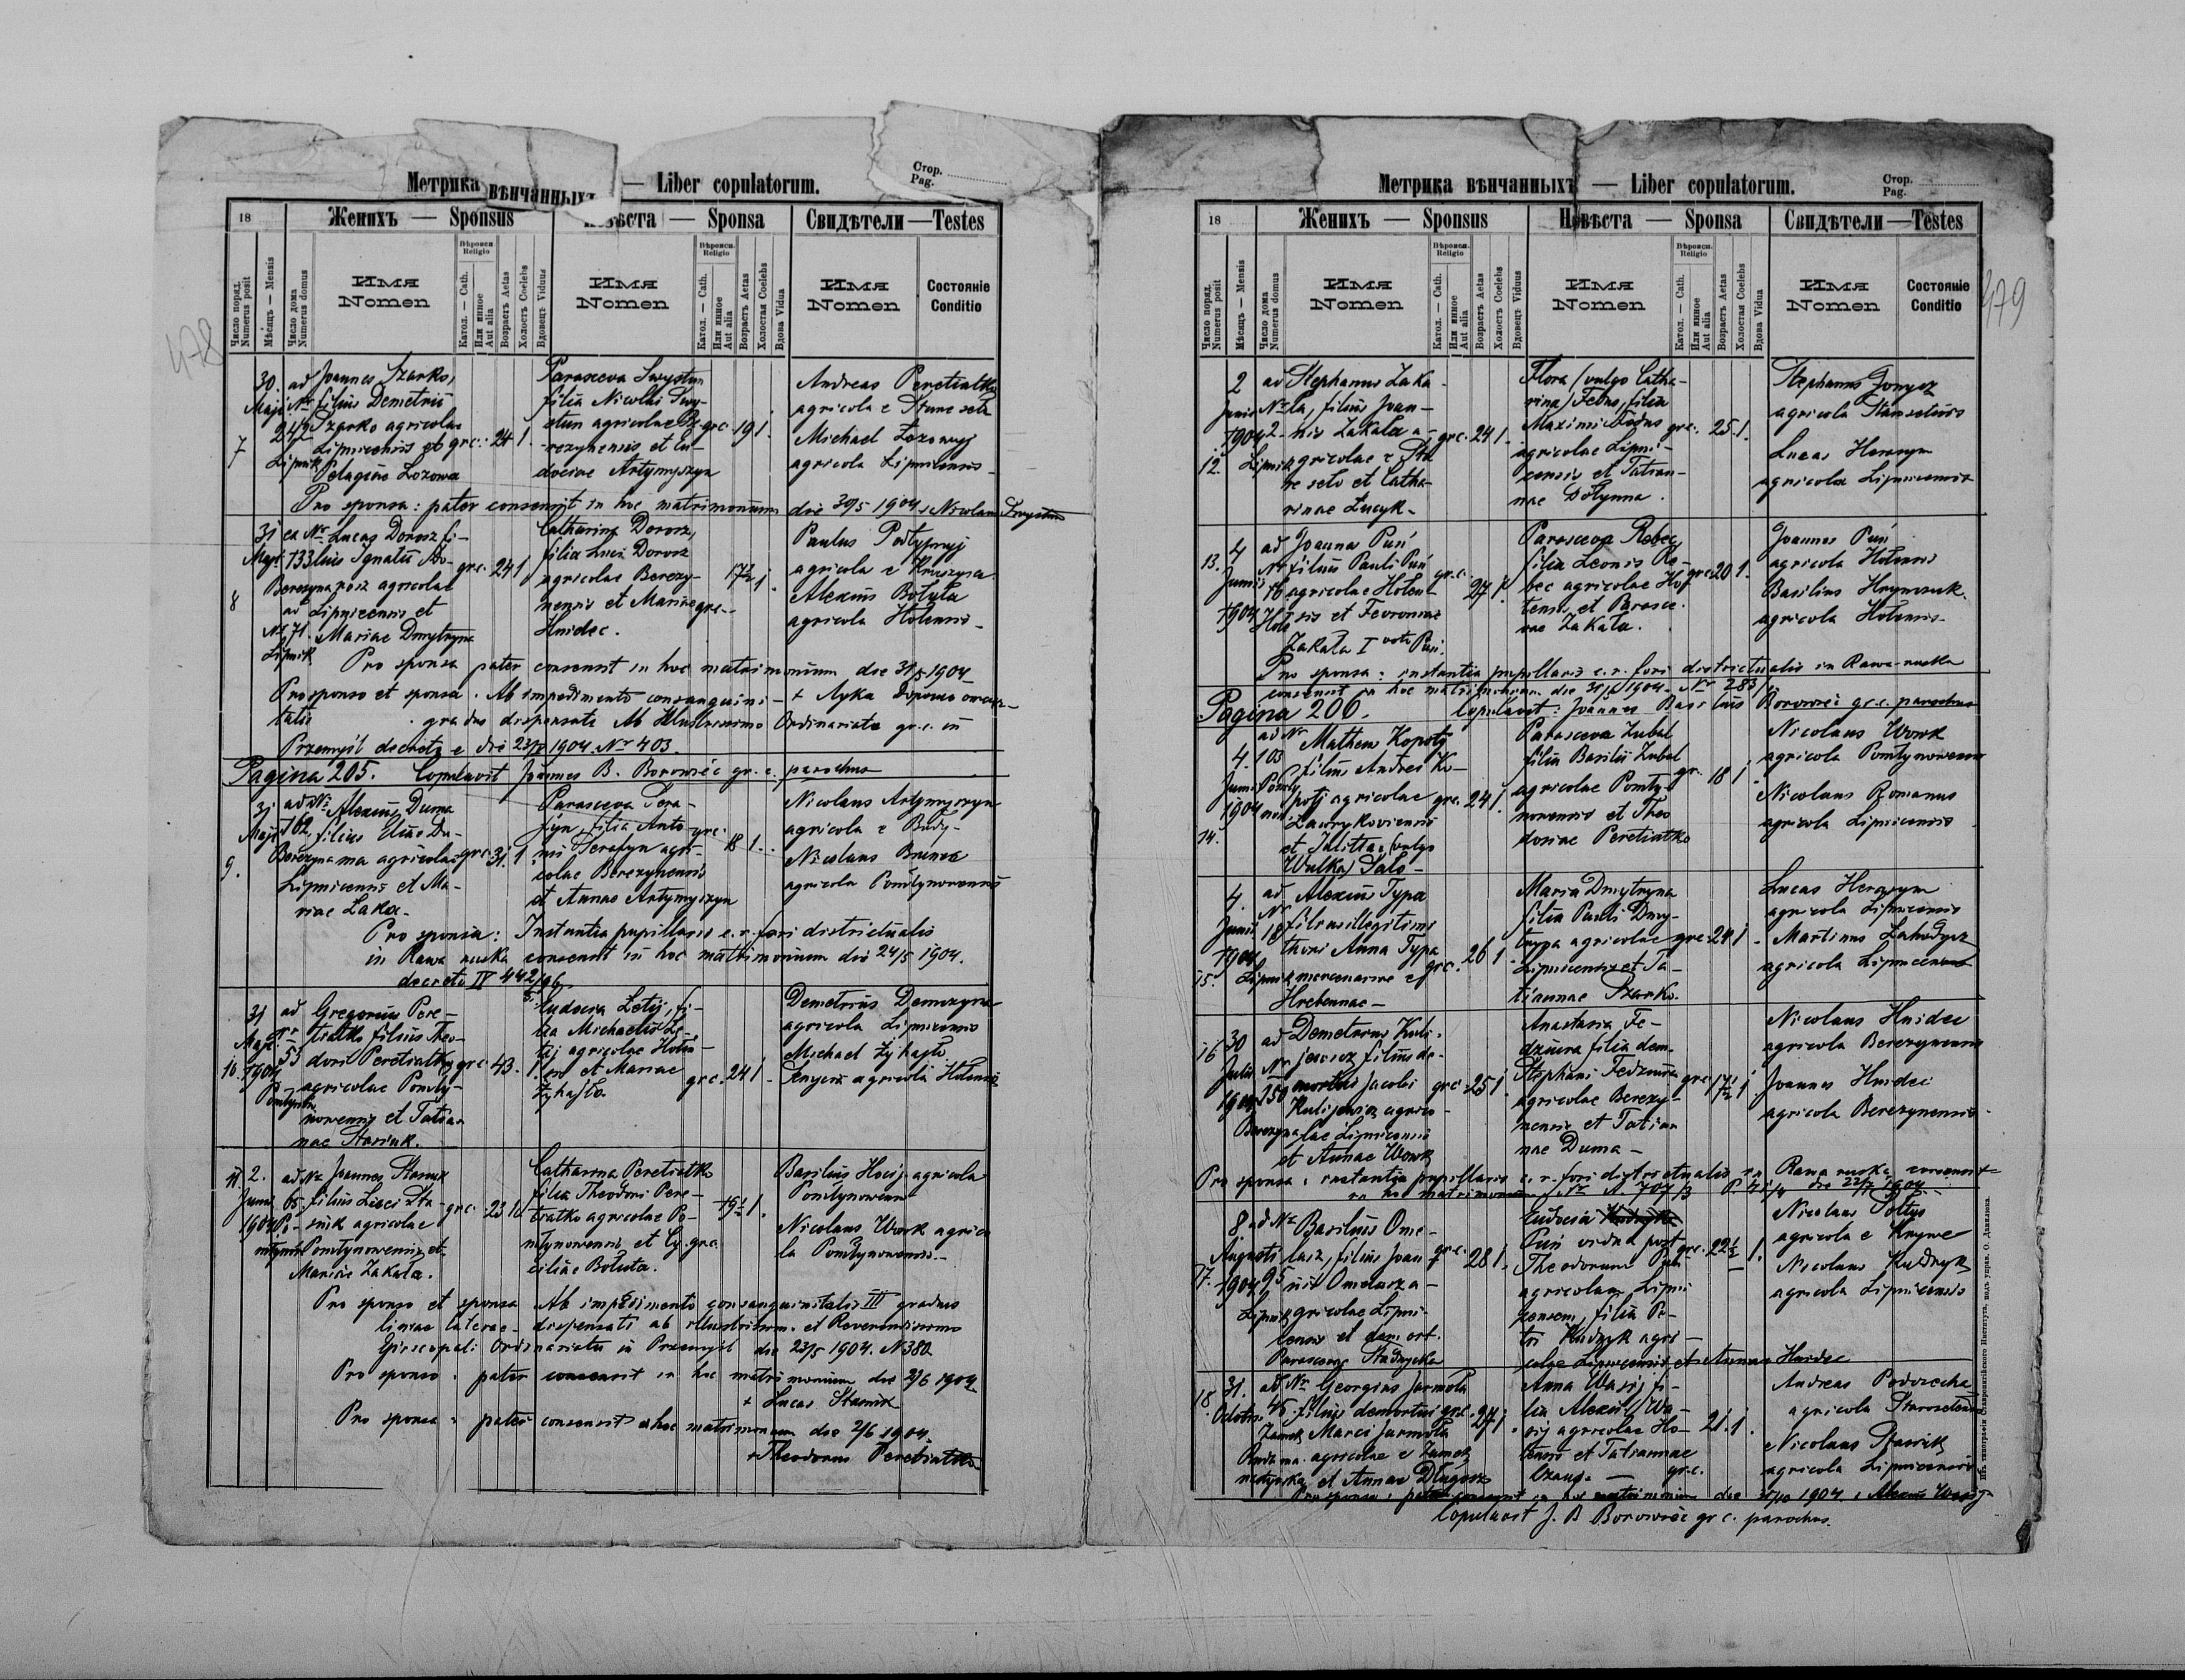 478
Стор.
Pag.
Метрика вѣнчанныхъ — Liber copulatorum.
18
Женихъ — Sponsus
Невѣста — Sponsa
Свидѣтели — Testes
Число поряд. Numerus posit
Мѣсяцъ — Mensis
Число дома Numerus domus
Имя
Nomen
Вѣроисп. Religio
Катол. — Cath.
Или инное Aut alia
Возрастъ Aetas
Холостъ Coelebs
Вдовецъ Viduus
Имя
Nomen
Вѣроисп. Religio
Катол. — Cath.
Или инное Aut alia
Возрастъ Aetas
Холостая Coelebs
Вдова Vidua
Имя
Nomen
Состояніе
Conditio
7
30. Maji
ad Nr 242 Lipnik
Joannes Szarko,
filius Demetrii
Szarko agricolae
Lipnicensis et
Pelagiae Lozowa
gr c. 24 1.
Parasceva Swystun
filia Nicolai Swy-
stun agricolae Be-
rezynensis et Eu-
dociae Artymyszyn
gr c. 19 1.
Andreas Peretiatko
agricola e Stare seło
Michael Łozowyj
agricola Lipnicensis
Pro sponsa: pater consensit in hoc matrimonium die 30/5 1904 Nicolaus Swystun
8
31 Maji
ex Nr 133 Berezyna
ad Nr 71. Lipnik
Lucas Dorosz fi-
lius Ignatii Do-
rosz agricolae
Lipnicensis et
Mariae Dmytryna
gr c. 24 1
Catharina Dorosz,
filia Luci Dorosz
agricolae Berezy-
nensis et Mariae
Hnidec.
gr c. 17½ 1.
Paulus Połtypnyj
agricola e Kruszyna
Alexius Bołuta
agricola Hotensis
Pro sponsa pater consensit in hoc matrimonium die 31/5 1904
Pro sponso et sponsa. Ab impedimento consanguini- + Лука Дорошъ
tatis gradus dispensati Ab Illustrissimo Ordinariatu gr. c. in
Przemyśl decreto e die 23/5 1904. Nr 403.
Pagina 205. Copulavit Joannes B. Borowiec gr. c. parochus
9.
31 Maji
ad Nr 162 Berezyna
Alexius Duma
filius Eliae Du-
ma agricolae
Lipnicensis et Ma-
riae Łaka.
gr c. 31. 1
Parasceva Sera-
fyn, filia Anto-
nii Serafyn agri-
colae Berezynensis
et Annae Artymyszyn
gr c. 18 1.
Nicolaus Artymyszyn
agricola e Budy-
Nicolaus Bunda
agricola Pomłynowensis
Pro sponsa: Instantia pupillaris c. r. fori districtualis
in Rawa ruska consensit in hoc matrimonium die 24/5 1904.
decreto IV 442/96
10.
31 Maji 1904
ad Nr 53 Pomłynów
Gregorius Pere-
tiatko filius Theo-
dori Peretiatko
agricolae Pomły-
nowensis et Tatian-
nae Stasiuk.
gr c. 43. 1
Eudocia Letij, fi-
lia Michaelis Le-
tij agricolae Hoten-
sis et Mariae
Żyhajło.
gr c. 24 1.
Demetrius Demczyna
agricola Lipnicensis
Michael Żyhajło
agricola Hotensis
11.
2. Junii 1904
ad Nr 65. Pomłynów
Joannes Stasiuk
filius Luci Sta-
siuk agricolae
Pomłynowensis et
Mariae Zakała.
gr c. 23 1.
Catharina Peretiatko
filia Theodori Pere-
tiatko agricolae Po-
młynowensis et Cy-
ciliae Bołuta.
gr c. 19½ 1.
Basilius Hocij agricola
Pomłynowensis
Nicolaus Wowk agrico
la Pomłynowensis.
Pro sponso et sponsa Ab impedimento consanguinitatis III gradus
lineae laterae. dispensati ab illustrissimo et Reverendissimo
Episcopali Ordinariatu in Przemyśl die 23/5 1904. N 380.
Pro sponso: pater consensit in hoc matrimonium die 2/6 1904
+ Lucas Stasiuk
Pro sponsa: pater consensit in hoc matrimonium die 2/6 1904.
+ Theodorus Peretiatko
479
Стор.
Pag.
Метрика вѣнчанныхъ — Liber copulatorum.
18
Женихъ — Sponsus
Невѣста — Sponsa
Свидѣтели — Testes
Число поряд. Numerus posit
Мѣсяцъ — Mensis
Число дома Numerus domus
Имя
Nomen
Вѣроисп. Religio
Катол. — Cath.
Или инное Aut alia
Возрастъ Aetas
Холостъ Coelebs
Вдовецъ Viduus
Имя
Nomen
Вѣроисп. Religio
Катол. — Cath.
Или инное Aut alia
Возрастъ Aetas
Холостая Coelebs
Вдова Vidua
Имя
Nomen
Состояніе
Conditio
12.
2 Junii 1904
ad Nr 2. Lipnik
Stephanus Zaka-
ła, filius Joan-
nis Zakała a-
gricolae e Sta
re seło et Catha-
rinae Łucyk.
gr c. 24 1.
Flora (vulgo Catha-
rina) Fedus, filia
Maximi Fedus
agricolae Lipni-
censis et Tatian-
nae Dołynna.
gr c. 25. 1.
Stephanus
agricola Staroselensis
Lucas Herasym
agricola Lipnicensis
13.
4 Junii 1904
ad Nr 16 Hota
Joannes Puń
filius Pauli Puń
agricolae Hoten-
sis et Fevroniae
Zakała I voto Puń.
gr c. 27 1.
Parasceva Rebec
filia Leonis Re-
bec agricolae Ho-
tensis et Parasce-
vae Zakała.
gr c. 20 1.
Joannes Puń
agricola Hotensis
Basilius Hrynczuk.
agricola Hotensis
Pro sponsa: instantia pupillaris c. r. fori districtualis in Rawa-ruska
consensit in hoc matrimonium die 1904. Nr 283/
Pagina 206. Copulavit: Joannes Basilius Borowiec gr. c. parochus
14.
4. Junii 1904
ad Nr 103
Matheus Kopotij
filius Andrei Ko-
potij agricolae
Ławrykoviensis
et Julittae (vulgo
Wulka) Sało-
gr c. 24 1.
Parasceva Zubal
filia Basilii Zubal
agricolae Pomły-
nowensis et Theo
dosiae Peretiatko
gr. 18 1
Nicolaus Wowk
agricola Pomłynowensis
Nicolaus Romanus
agricola Lipnicensis
15.
4. Junii 1904
ad Nr 18 Lipnik
Alexius Typa
filius illegitimi
thori Anna Typa
mercenariae e
Hrebennae
gr c. 26 1
Maria Dmytryna
filia Pauli Dmy-
tryna agricolae
Lipnicensis et Ta-
tiannae Szarko.
gr c. 24 1
Lucas Herasym
agricola Lipnicensis
Martinus Zahodycz
agricola Lipnicensis
16
30 Julii 1904
ad Nr 250 Berezyna
Demetrius Kuli-
jewicz filius de-
mortui Jacobi
Kulijewicz agrico-
lae Lipnicensis
et Annae Wowk
gr c. 25 1.
Anastasia Fe-
dziura filia dem.
Stephani Fedziura
agricolae Berezy-
nensis et Tatian
nae Duma
gr c. 17½ 1
Nicolaus Hnidec
agricola Berezynensis
Joannes Hnidec
agricola Berezynensis
Pro sponsa: instantia pupillaris c. r. fori districtualis in Rawa ruska consensit
in hoc matrimonium Nr 707/3 die 22/7 1904
17.
8 Augusti 1904
ad Nr 95 Lipnik
Basilius Ome-
lasz, filius Joan
nis Omelasz a-
gricolae Lipni-
censis et dem. ort.
Parascevae Stadnycka
gr c. 28 1.
Eudocia
Puń vidua post
Theodorum Puń
agricolam Lipni
censem, filia Pe-
tri Kudryk agri-
colae Lipnicensis et Annae Hnidec
gr c. 22½ 1.
Nicolaus Sołtys
agricola e Knyne
Nicolaus Kudryk
agricola Lipnicensis
18.
31. Octobris
ad Nr 46. Zamek
Georgius Jarmoła
filius demortui
Marci Jarmoła
agricolae e Zamek
et Annae Długosz
gr c. 27 1.
Anna Wasij fi-
lia Alexii Wa-
sij agricolae Ho-
tensis et Tatiannae
gr c. 21. 1.
Andreas Podozecha
agricola Staroselensis
Nicolaus Stasiuk
agricola Lipnicensis
Pro sponsa: pater consensit in hoc matrimonium die 31/10 1904. Alexius Wasij
Copulavit J. B Borowiec gr c. parochus.
Изъ типографіи Ставропигійского Института, подъ управ. О. Данилюка.